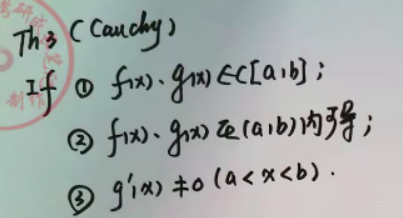 Th 3 (Cauchy)
If ① f(x)、g(x) ∈ C[a,b];
② f(x)、g(x) 在(a,b)内可导;
③ g'(x) ≠ 0 (a < x < b).